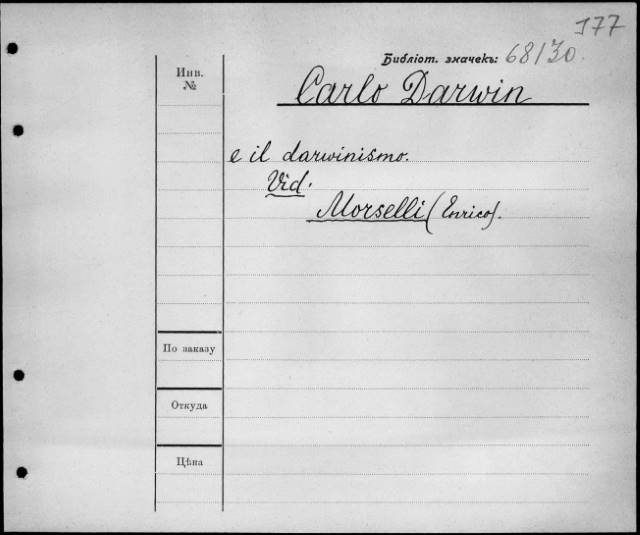 177
Библіот. значекъ: 68/30.
Инв.
№
Carlo Darwin
e il darwinismo.
Vid.
Morselli (Enrico).
По заказу
Откуда
Цѣна